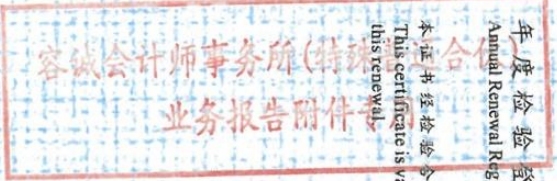 容诚会计师事务所(特殊普通合伙)
业务报告附件专用
年度检验登
Annual Renewal Reg
本证书经检验合
This certificate is va
this renewal